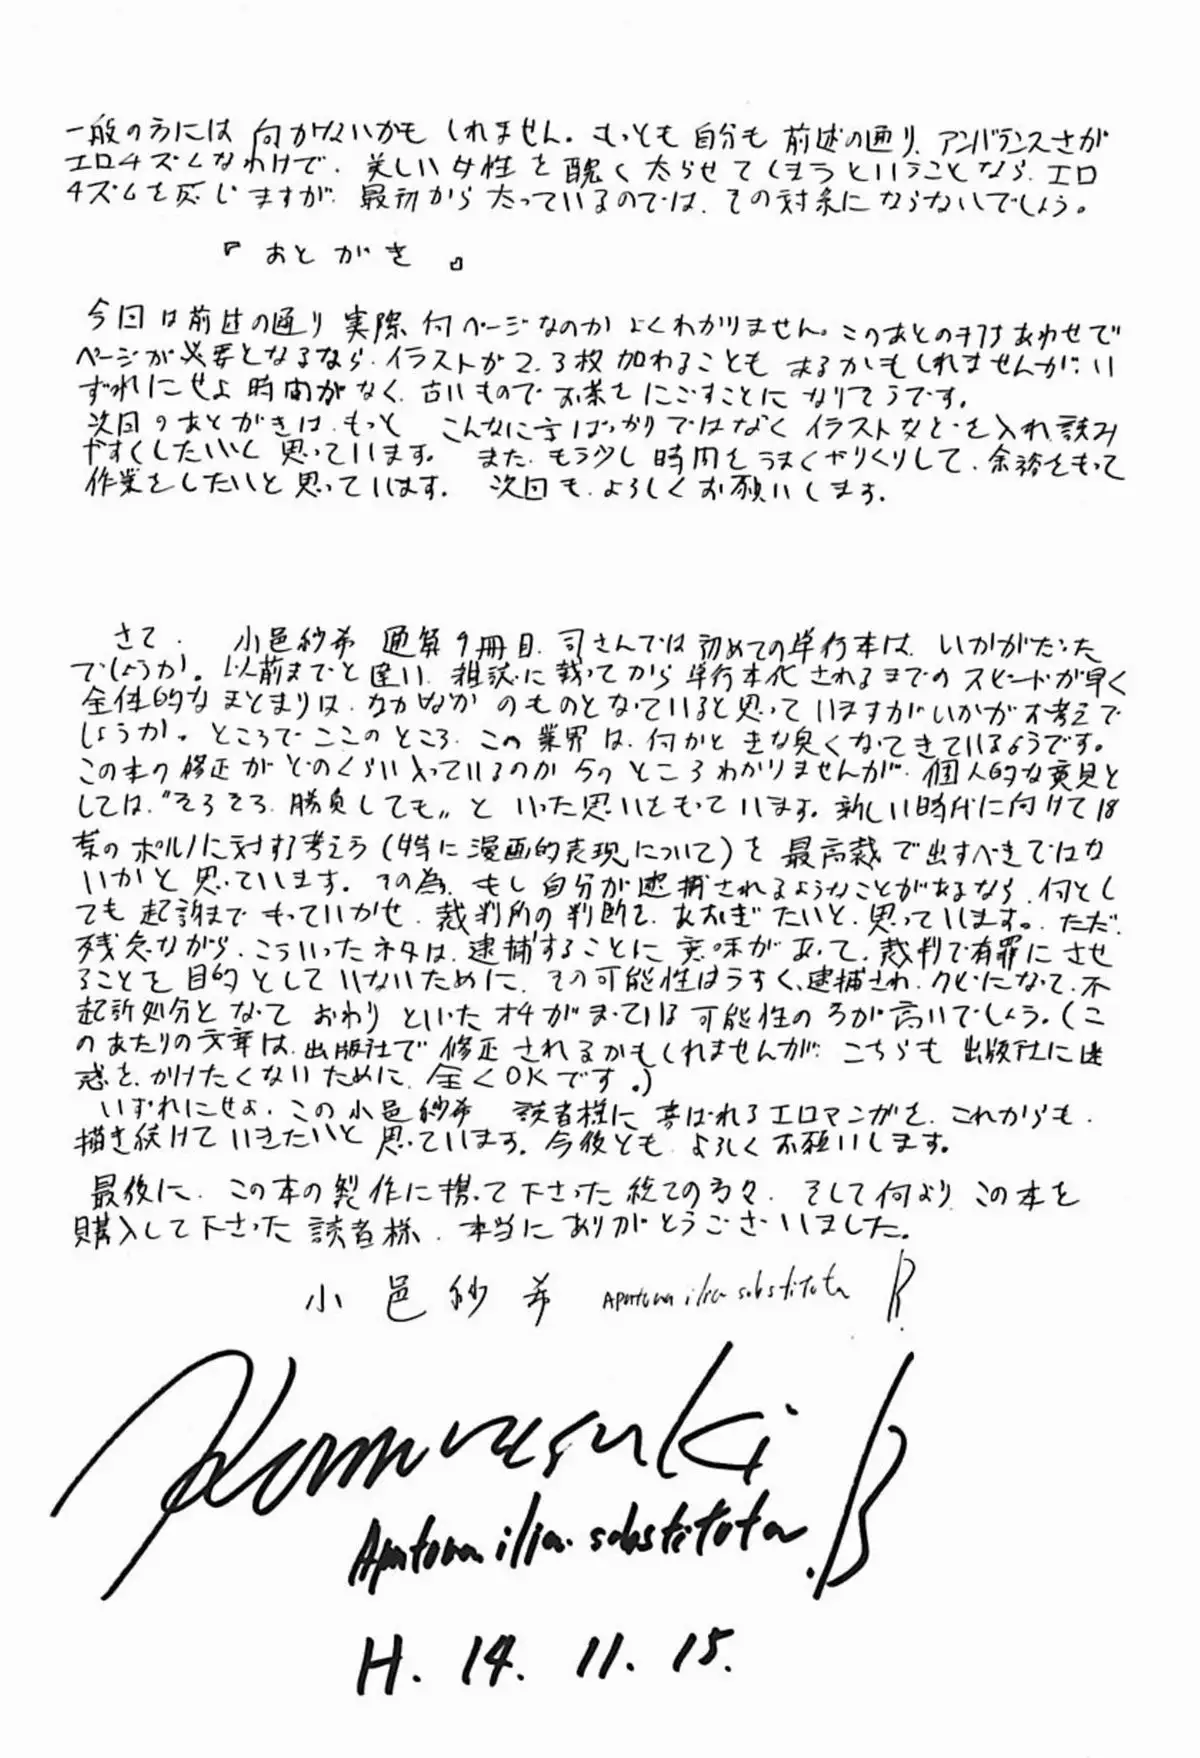 一般の方には 向かけないかも しれません。もっとも 自分も 前述の通り、アンバランスさが
エロチズムなわけで、美しい女性を醜く太らせてしまうということなら、エロ
チズムを感じますが、最初から太っているのでは、その対象にならないでしょう。
『 あとがき 』
今回は前述の通り 実際、何ページなのか よくわかりません。このあとの打ちあわせで
ページが必要となるなら、イラストが2、3枚 加わることも あるかもしれませんが、い
ずれにせよ 時間がなく、古いもので お茶を にごすことに なりそうです。
次回のあとがきは、もっと こんなに字ばっかりではなく イラストなどを入れ、読み
やすくしたいと 思っています。 また、もう少し 時間をうまくやりくりして、余裕をもって
作業をしたいと 思っています。 次回も、よろしくお願いします。
さて、 小邑紗希 通算9冊目、司さんでは 初めての単行本は、いかがだった
でしょうか。以前までと違い、雑誌に載ってから 単行本化 されるまでの スピードが早く
全体的なまとまりは、なかなか のものとなっていると思って いますがいかがお考えで
しょうか。ところでここのところ、この業界は、何かと きな臭くなってきているようです。
この本の修正が どのくらい入っているのか 今の ところ わかりませんが、個人的な意見と
しては、“そろそろ、勝負しても„ と いった思いをもっています。新しい時代に向けて18
禁の ポルノに対する考えう (特に漫画的表現について) を 最高裁 で出すべきではな
いかと 思っています。その為、もし自分が逮捕されるようなことがあるなら、何とし
ても 起訴まで もっていかせ、裁判所の判断を、あおぎたいと、思っています。ただ、
残念ながら、こういったネタは、逮捕することに 意味があって、裁判で有罪にさせ
ることを 目的としていないために、その可能性はうすく、逮捕され、クビになって、不
起訴処分と なって おわり といったオチがまっている可能性のほうが高いでしょう。(こ
のあたりの文章は、出版社で 修正されるかもしれませんが、こちらも 出版社に迷
惑を、かけたくないために、全くOKです。)
いずれにせよ、この小邑紗希 読者様に 喜ばれるエロマンガを、これからも、
描き続けて いきたいと 思っています。今後とも、よろしくお願いします。
最後に、この本の製作に携って下さった総ての方々、そして何より、この本を
購入して下さった読者様、本当にありがとうございました。
小邑紗希 Apatura ilia substituta R.
Komurasaki R
Apatura ilia substituta.
H. 14. 11. 15.